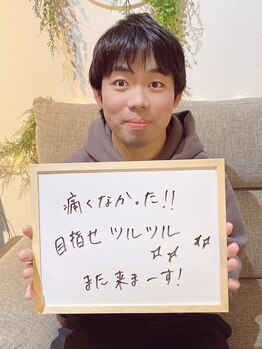 痛くなかった!!
目指せ ツルツル
また来まーす!